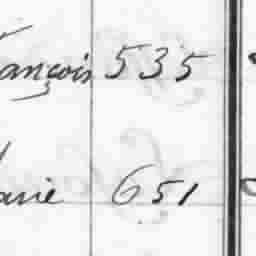 ançois 535
arie 651